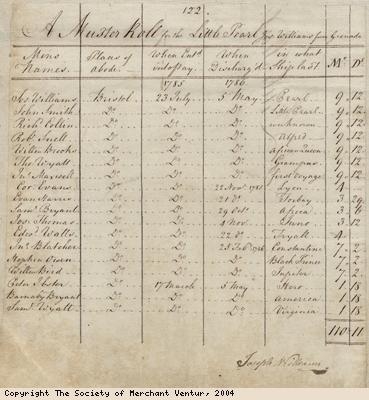 122
A Muster Roll for the Little Pearl Jos Williams from Grenada
Mens Names. Plans of abode. When Entd into pay. When Discharg'd. in what Ship last. Ms Ds
1785 1786
Jos Williams Bristol 23 July 5 May Pearl 9 12
John Smith Do Do Do Little Pearl 9 12
Richd Collin Do Do Do unknown 9 12
Robt Snell Do Do Do Alfred 9 12
Willm Brooks Do Do Do African Queen 9 12
Thos Wyatt Do Do Do Grampus 9 12
Jno Maxwell Do Do Do first Voyage 9 12
Cor Evans Do Do 22 Novr 1785 Lyon 4
Evan Harris Do Do 21 Do Torbay 3 29
Saml Bryant Do Do 29 Octr Africa 3 6
Jos Thomas Do Do 4 Novr Juno 3 12
Edwd Watts Do Do 22 Do Tryall 4
Jno Blatcher Do Do 25 Feb 1786 Constantine 7 2
Stephen Owen Do Do Do Black Prince 7 2
Willm Bird Do Do Do Jupiter 7 2
Do 17 March 5 May Hero 1 18
Barnaby Bryant Do Do Do America 1 18
Saml Wyatt Do Do Do Virginia 1 18
110 11
Joseph Williams
Copyright The Society of Merchant Ventur, 2004